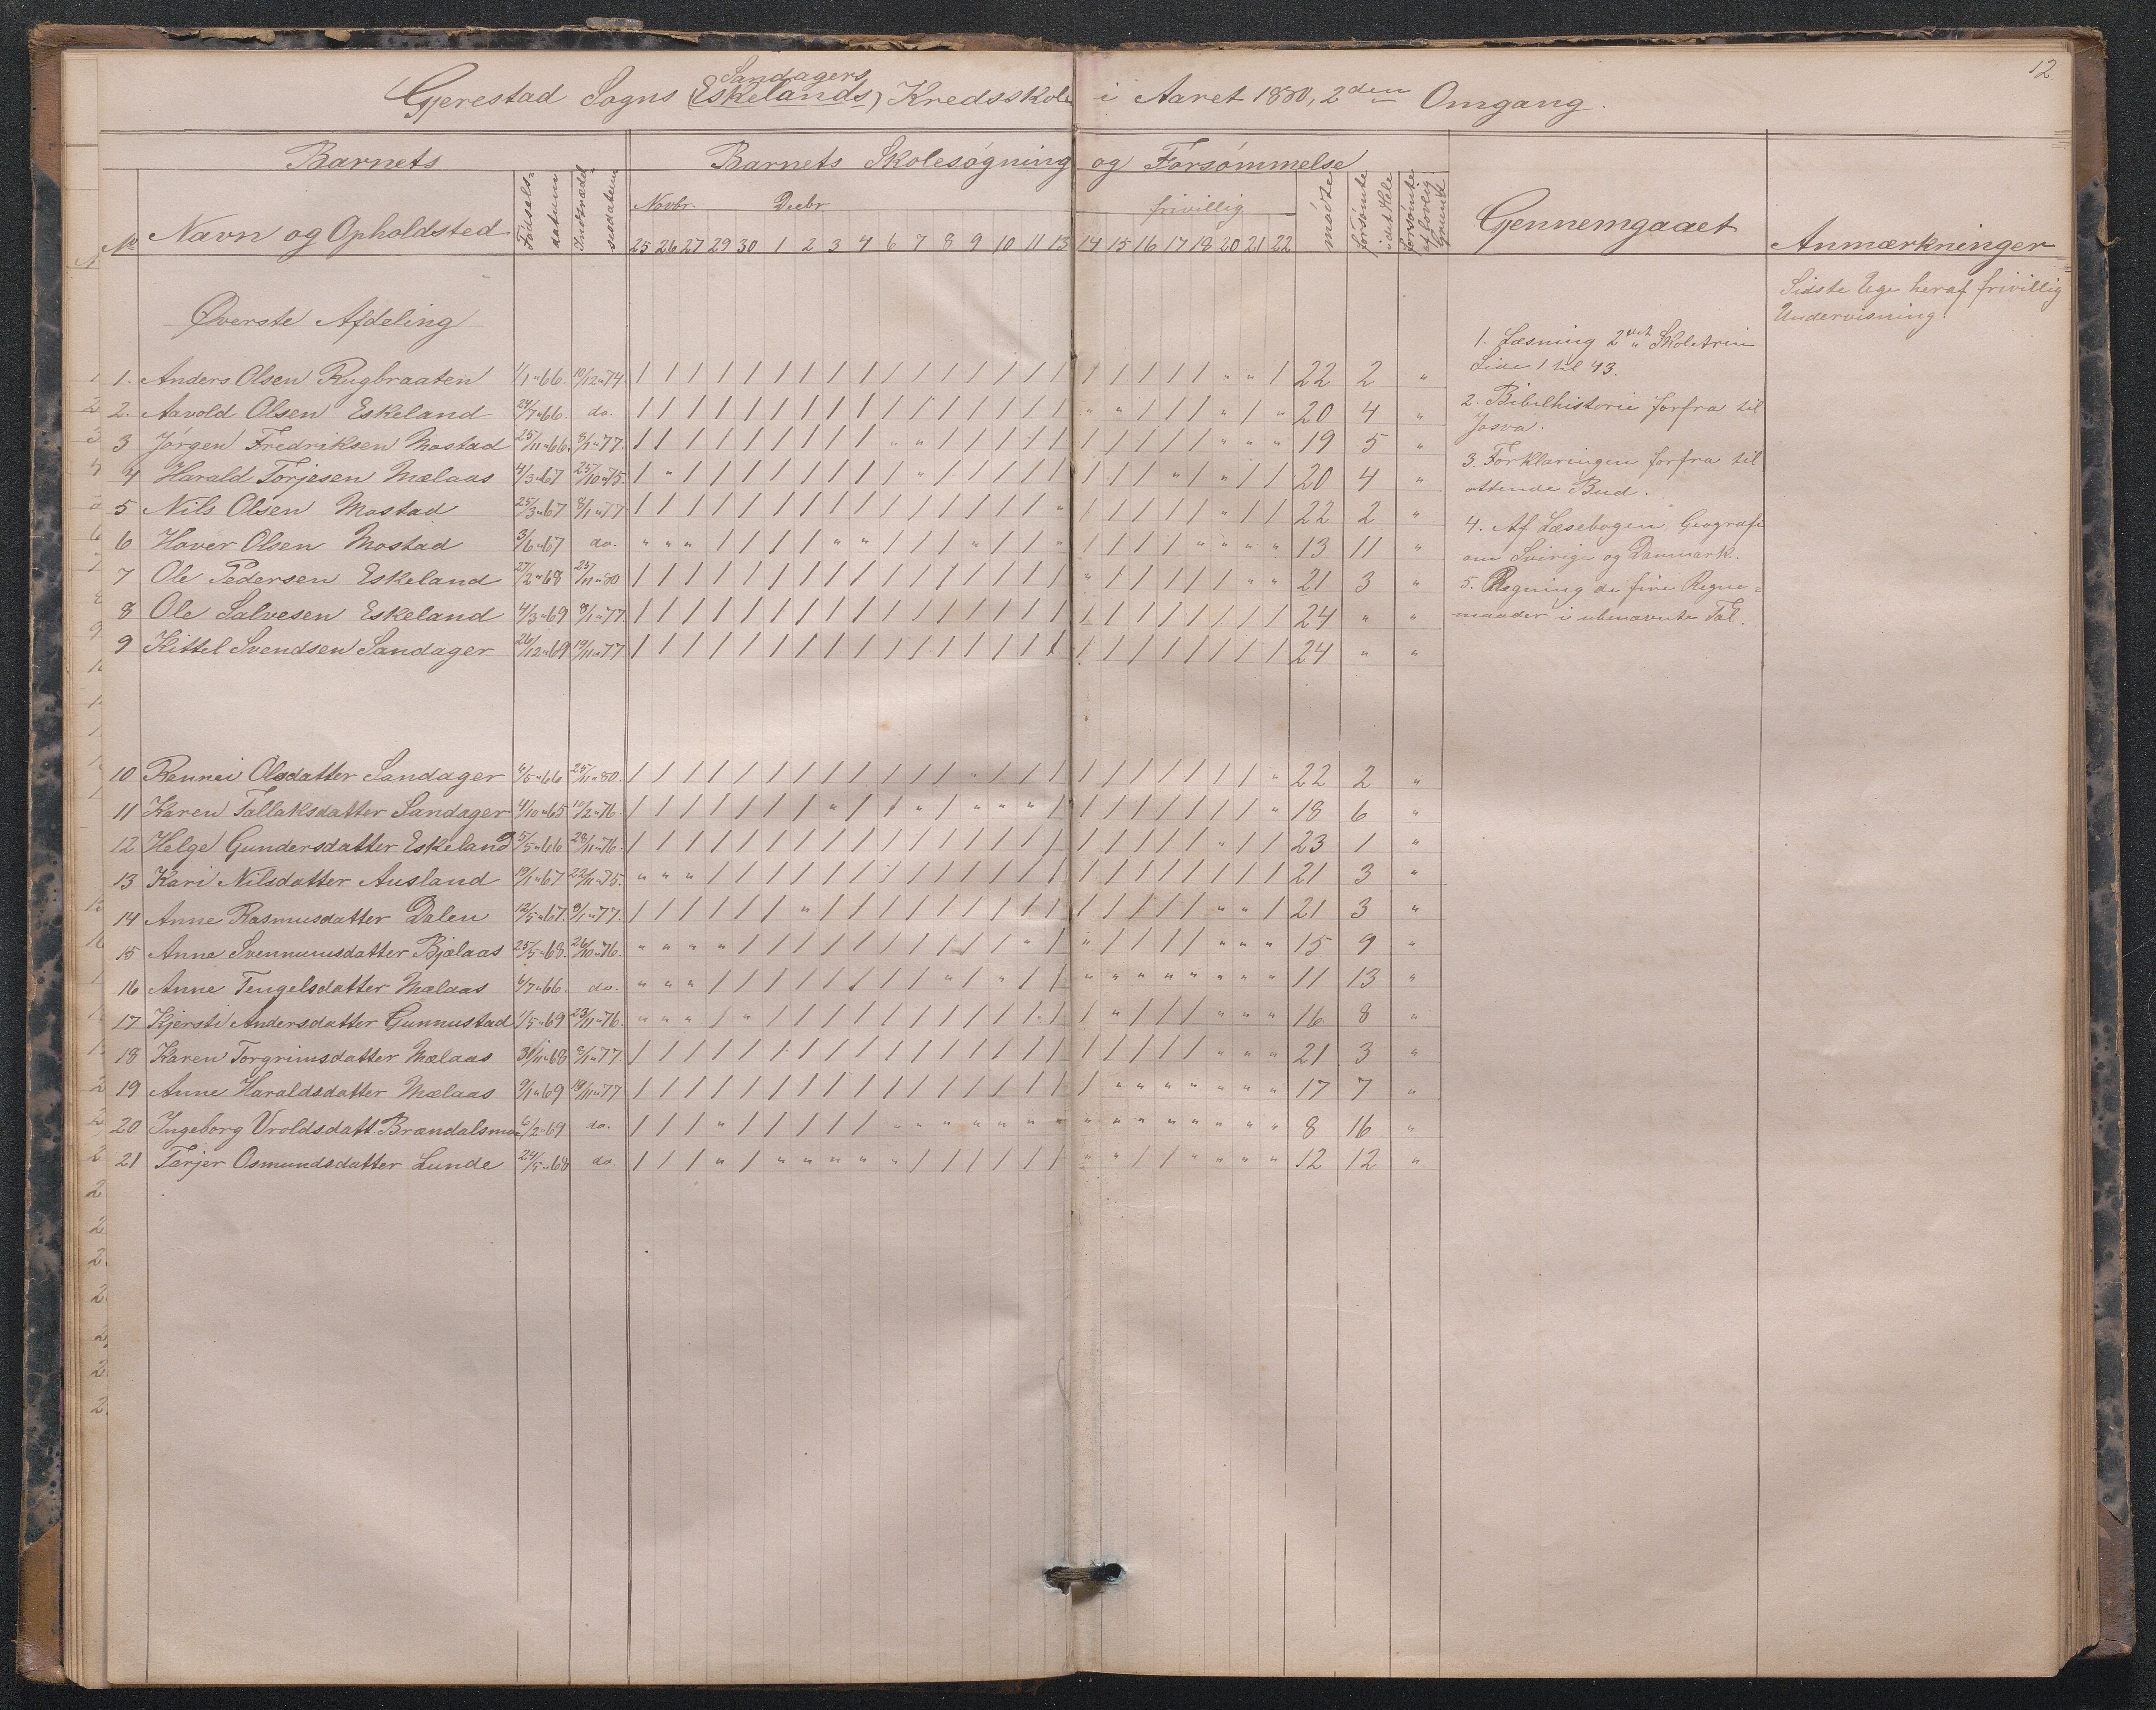 12.
Sandagers
Gjerestad Sogns (Eskelands) Kredsskole i Aaret 1880, 2den Omgang.
Barnets Barnets Skolesøgning og Forsømmelse
No Navn og Opholdsted Fødsels-datum Indtrædelsesdatum Novbr. Decbr. frivillig mødte forsømte i det Hele forsømte af lovlig Grund Gjennemgaaet Anmærkninger
25 26 27 29 30 1 2 3 4 6 7 8 9 10 11 13 14 15 16 17 18 20 21 22
Øverste Afdeling
1. Anders Olsen Rugbraaten 1/1 66. 10/12 74. / / / / / / / / / / / / / / / / / / / / / " " / 22 2 "
2. Aavold Olsen Eskeland 24/7 66. do. / / / / / / / / / / / / / / / / " " / / / " / " 20 4 "
3 Jørgen Fredriksen Mostad 25/11 66. 8/1 77. / / / / / / / / / " " / / / / / / / / / / " " " 19 5 "
4 Harald Torjesen Mælaas 4/3 67 25/10 75. / " / / / / / / / / " / / / / / / / / " / " / / 20 4 "
5 Nils Olsen Mostad 25/3 67 8/1 77 / / / / / / / / / / / / / / / " / / / / / " / / 22 2 "
6 Haver Olsen Mostad 3/6 67 do. " " " / / / / " " / / / " / / " / / / / " " " " 13 11 "
7 Ole Pedersen Eskeland 27/2 68 25/11 80 / / / / / / / / / / / / / / / / " / / / / / " " 21 3 "
8 Ole Salvesen Eskeland 4/3 69 8/1 77. / / / / / / / / / / / / / / / / / / / / / / / / 24 " "
9 Kittel Svendsen Sandager 26/12 69 19/11 77 / / / / / / / / / / / / / / / / / / / / / / / / 24 " "
10 Rannei Olsdatter Sandager 6/5 66 25/11 80. / / / / / / / / / / / / " / / / / / / / / / / " 22 2 "
11 Karen Tallaksdatter Sandager 4/10 65 10/2 76. / / / / / / / " / / " / " " " / / / / / / / / " 18 6 "
12 Helge Gundersdatter Eskeland 5/5 66 28/11 76. / / / / / / / / / / / / / / / / / / / / / " / / 23 1 "
13 Kari Nilsdatter Ausland 19/1 67 22/11 75. " " " / / / / / / / / / / / / / / / / / / / / / 21 3 "
14 Anne Rasmusdatter Dalen 12/5 67. 8/1 77. / / / / / / " / / / / / / / / / / / / / / " " / 21 3 "
15 Anne Svennumsdatter Bjælaas 25/5 68. 26/10 76. " " " " / / / / / / / / / / " / " / / / / " " " 15 9 "
16 Anne Tengelsdatter Mælaas 6/7 66. do. " " " / / / / / / / / " / " / / " " " " " " " " 11 13 "
17 Kjersti Andersdatter Gunnustad 1/5 69 23/11 76. " " " / " / / / / / / / / / / / / " / / / " " " 16 8 "
18 Karen Torgrimsdatter Mælaas 3/11 68 8/1 77 / / / / / / / / / / / / / / / / / / / / / " " " 21 3 "
19 Anne Haraldsdatter Mælaas 9/1 69 19/11 77 / / / / / / / / / / / / / / / / / " " " " " " " 17 7 "
20 Ingeborg Vroldsdatt. Brændalsmoe 6/2 69 do. / / / " / / / / / " " " " " " " " " " " " " " " 8 16 "
21 Tærjer Osmundsdatter Lunde 24/5 68 do. / / / " / " " " " " / / / / / / " " / / " " " " 12 12 "
1. Læsning 2det Skoletrin
Side 1 til 43.
2. Bibelhistorie forfra til
Josva.
3. Forklaringen forfra til
ottende Bud.
4. Af Læsebogen Geografi
om Sverige og Danmark.
5. Regning de fire Regne-
maader i ubenævnte Tal.
Sidste Uge heraf frivillig
Undervisning.